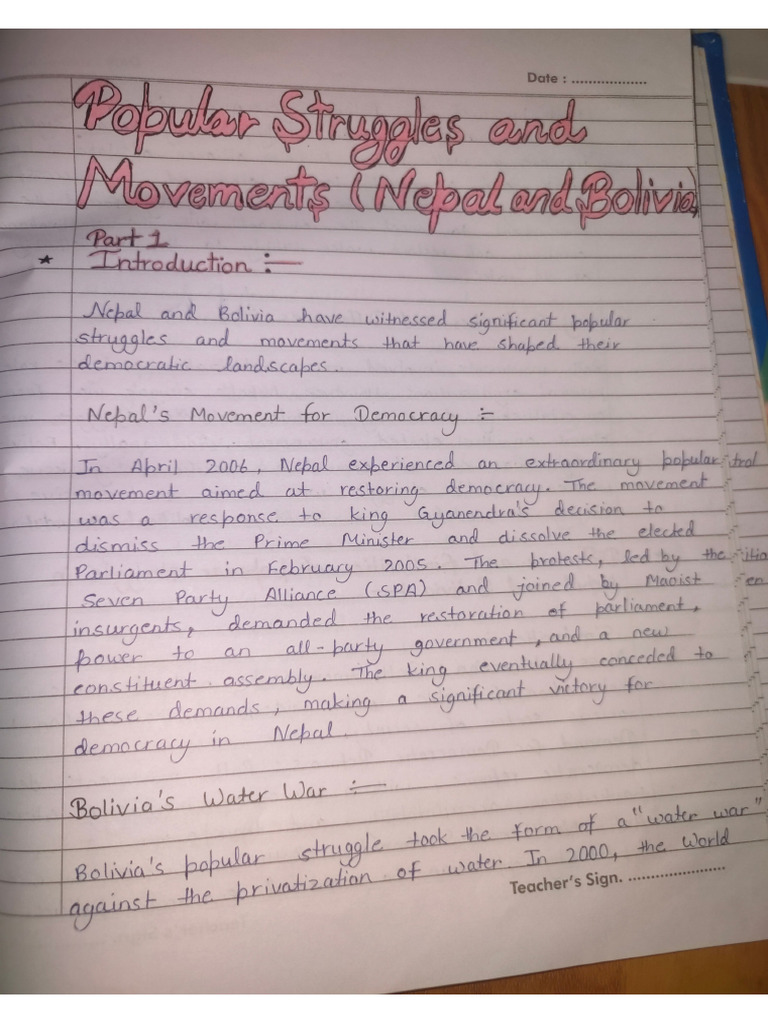 Date : ..................
Popular Struggles and
Movements (Nepal and Bolivia)
Part 1
* Introduction :-
Nepal and Bolivia have witnessed significant popular
struggles and movements that have shaped their
democratic landscapes.
Nepal's Movement for Democracy :-
In April 2006, Nepal experienced an extraordinary popular
movement aimed at restoring democracy. The movement
was a response to king Gyanendra's decision to
dismiss the Prime Minister and dissolve the elected
Parliament in February 2005. The protests, led by the
Seven Party Alliance (SPA) and joined by Maoist
insurgents, demanded the restoration of parliament,
power to an all-party government, and a new
constituent assembly. The king eventually conceded to
these demands, making a significant victory for
democracy in Nepal.
Bolivia's Water War :-
Bolivia's popular struggle took the form of a "water war"
against the privatization of water. In 2000, the World
Teacher's Sign. ......................